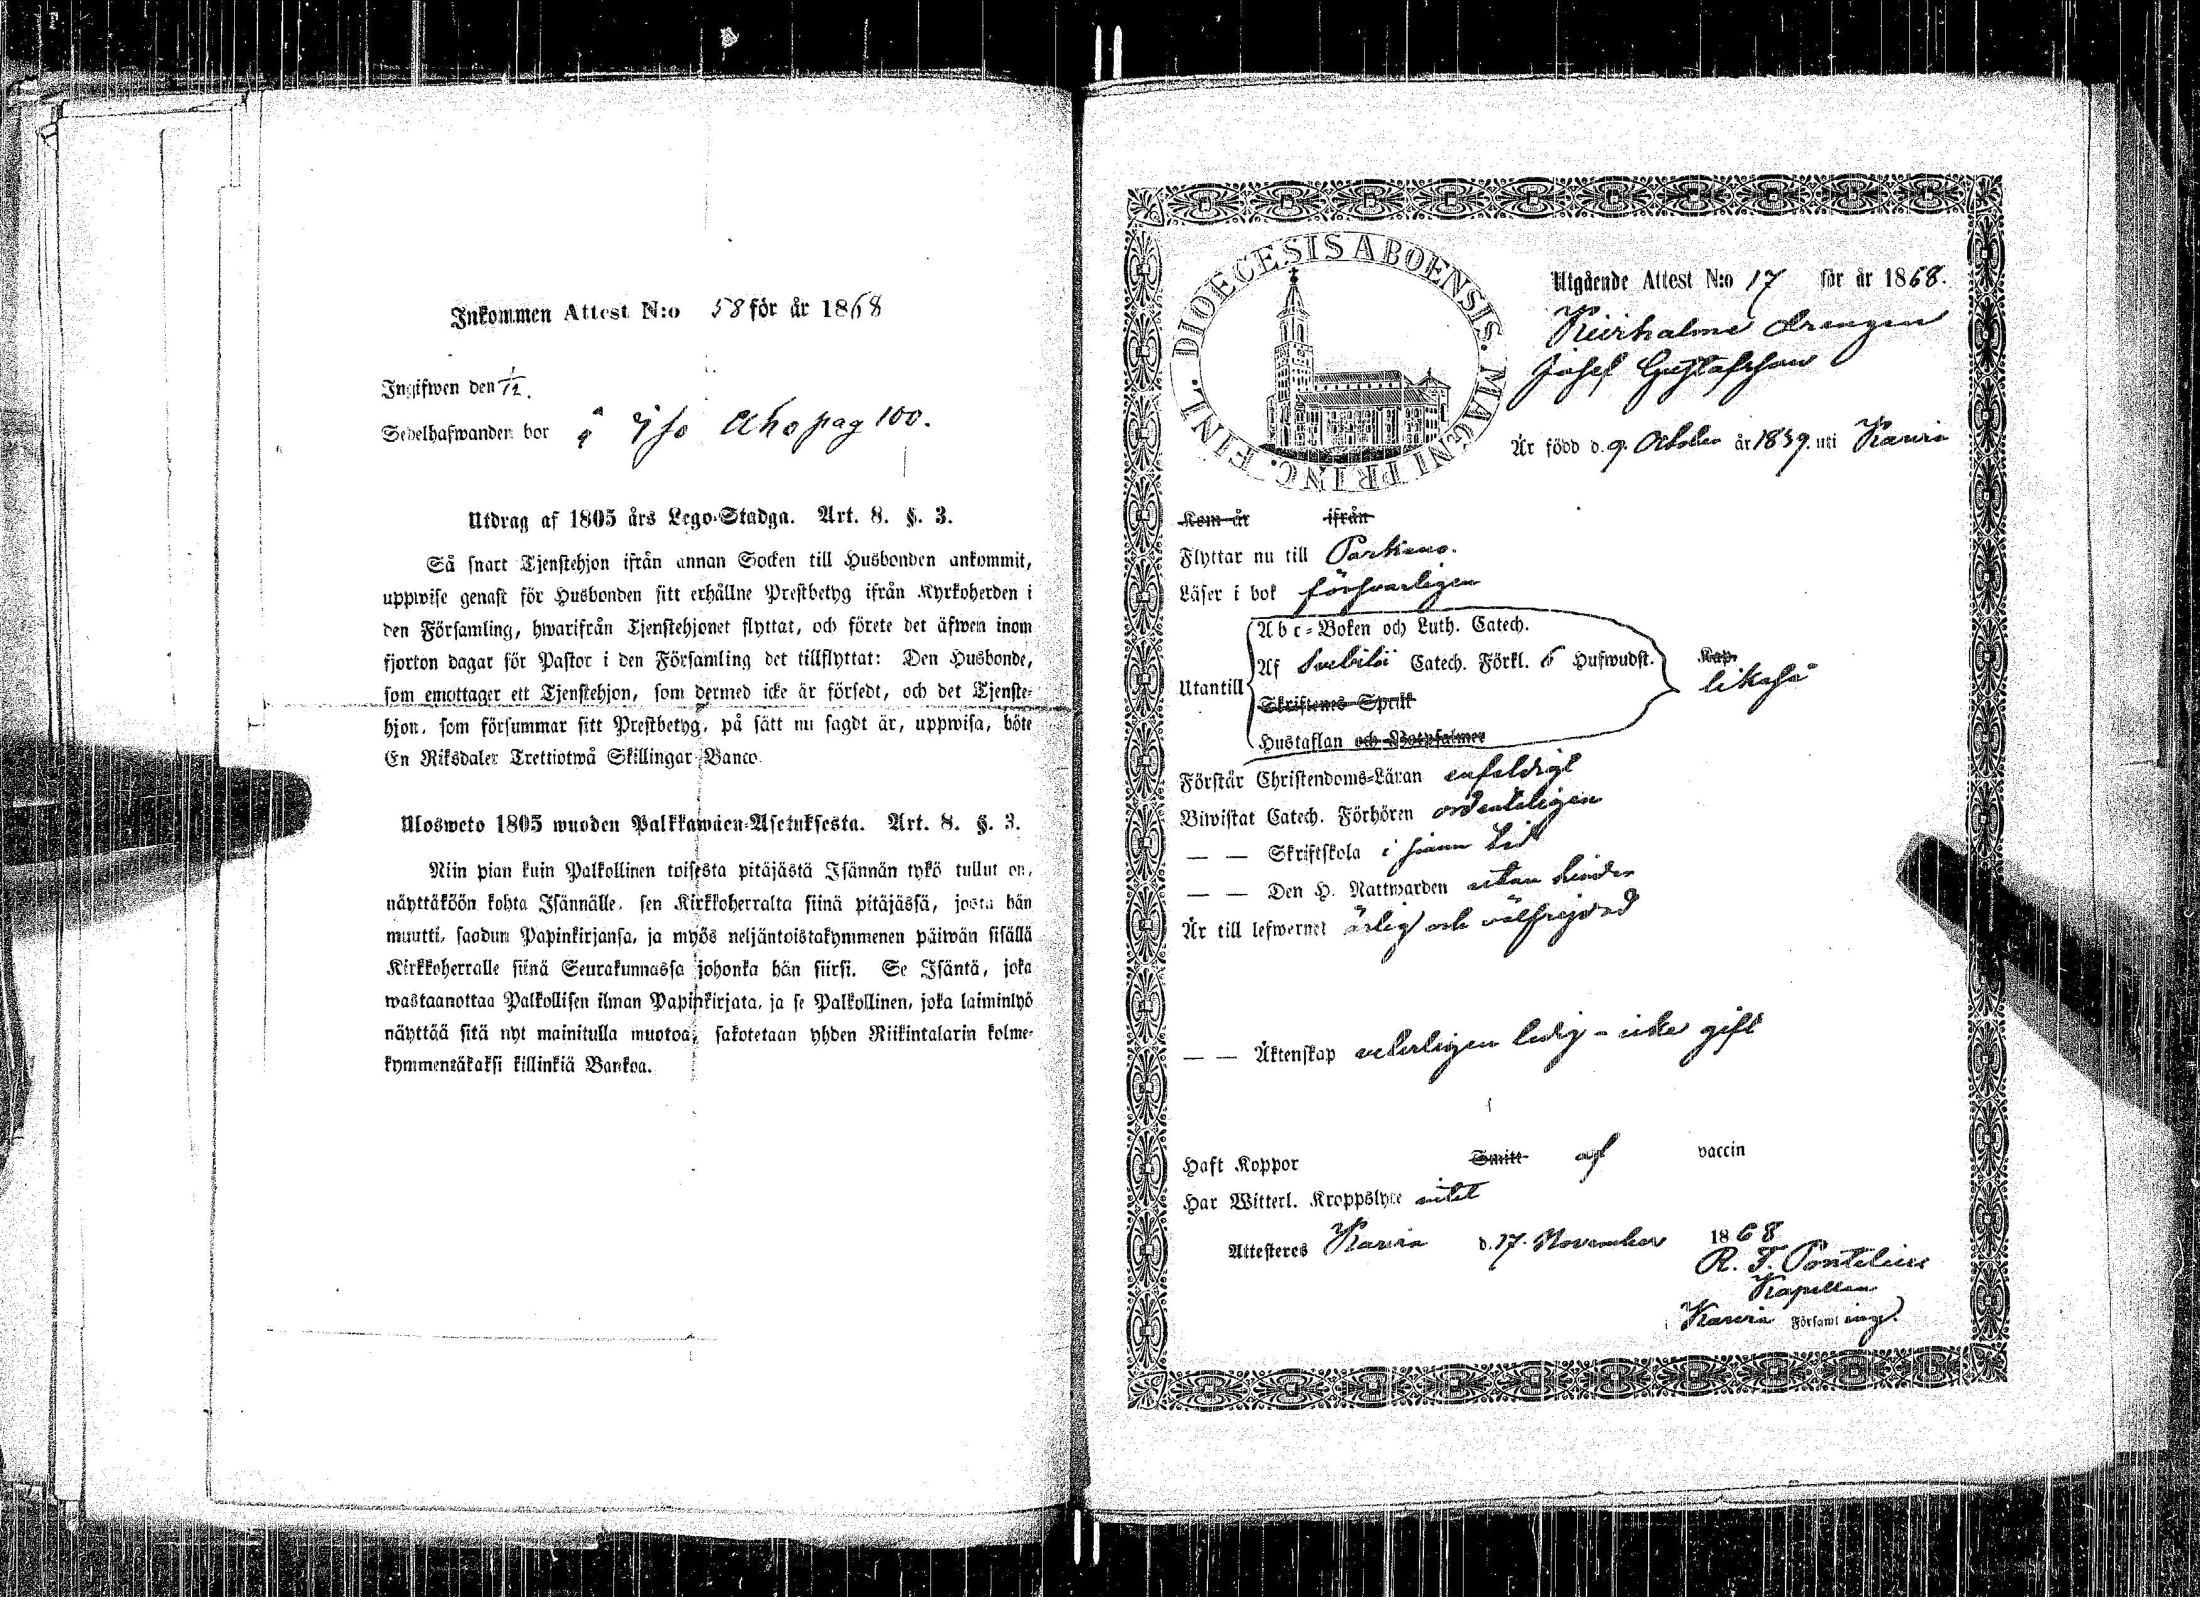 Inkommen Attest N:o 58 för år 1868
Ingifwen den 1/12.
Sedelhafwanden bor å Yso Aho pag 100.
Utdrag af 1805 års Lego-Stadga. Art. 8. §. 3.
Så snart Tjenstehjon ifrån annan Socken till Husbonden ankommit,
uppwise genast för Husbonden sitt erhållne Prestbetyg ifrån Kyrkoherden i
den Församling, hwarifrån Tjenstehjonet flyttat, och förete det äfwen inom
fjorton dagar för Pastor i den Församling det tillflyttat: Den Husbonde,
som emottager ett Tjenstehjon, som dermed icke är försedt, och det Tjenste-
hjon, som försummar sitt Prestbetyg, på sätt nu sagdt är, uppwisa, böte
En Riksdaler Trettiotwå Skillingar Banco.
Ulosweto 1805 wuoden Palkkawäen-Asetuksesta. Art. 8. §. 3.
Niin pian kuin Palkollinen toisesta pitäjästä Isännän tykö tullut on,
näyttäköön kohta Isännälle, sen Kirkkoherralta siinä pitäjässä, josta hän
muutti, saadun Papinkirjansa, ja myös neljäntoistakymmenen päiwän sisällä
Kirkkoherralle siinä Seurakunnassa johonka hän siirsi. Se Isäntä, joka
wastaanottaa Palkollisen ilman Papinkirjata, ja se Palkollinen, joka laiminlyö
näyttää sitä nyt mainitulla muotoa, sakotetaan yhden Riikintalarin kolme-
kymmentäkaksi killinkiä Bankoa.
DIOECESIS ABOENSIS. MAGNI PRINC. FINL.
Utgående Attest N:o 17 för år 1868.
drengen
Josef Gustafsson
Är född d. 9. October år 1839. uti Karvia
Kom år ifrån
Flyttar nu till Parkano.
Läser i bok försvarligen
Abc-Boken och Luth. Catech.
Af Svebilii Catech. Förkl. 6 Hufwudst. Kap.
Utantill likaså
Skriftenes Språk
Hustaflan och Botpsalmer
Förstår Christendoms-Läran enfaldigt
Biwistat Catech. Förhören ordenteligen
— — Skriftskola i sinom tid
— — Den H. Nattwarden utan hinder
Är till lefwernet ärlig och välfrejdad
— — Äktenskap veterligen ledig - icke gift
Haft Koppor Smitt af vaccin
Har Witterl. Kroppslyte intet
Attesteres Karvia d. 17. November 1868
R. F. Pontelius
Kapellan
i Karvia Församlinge.